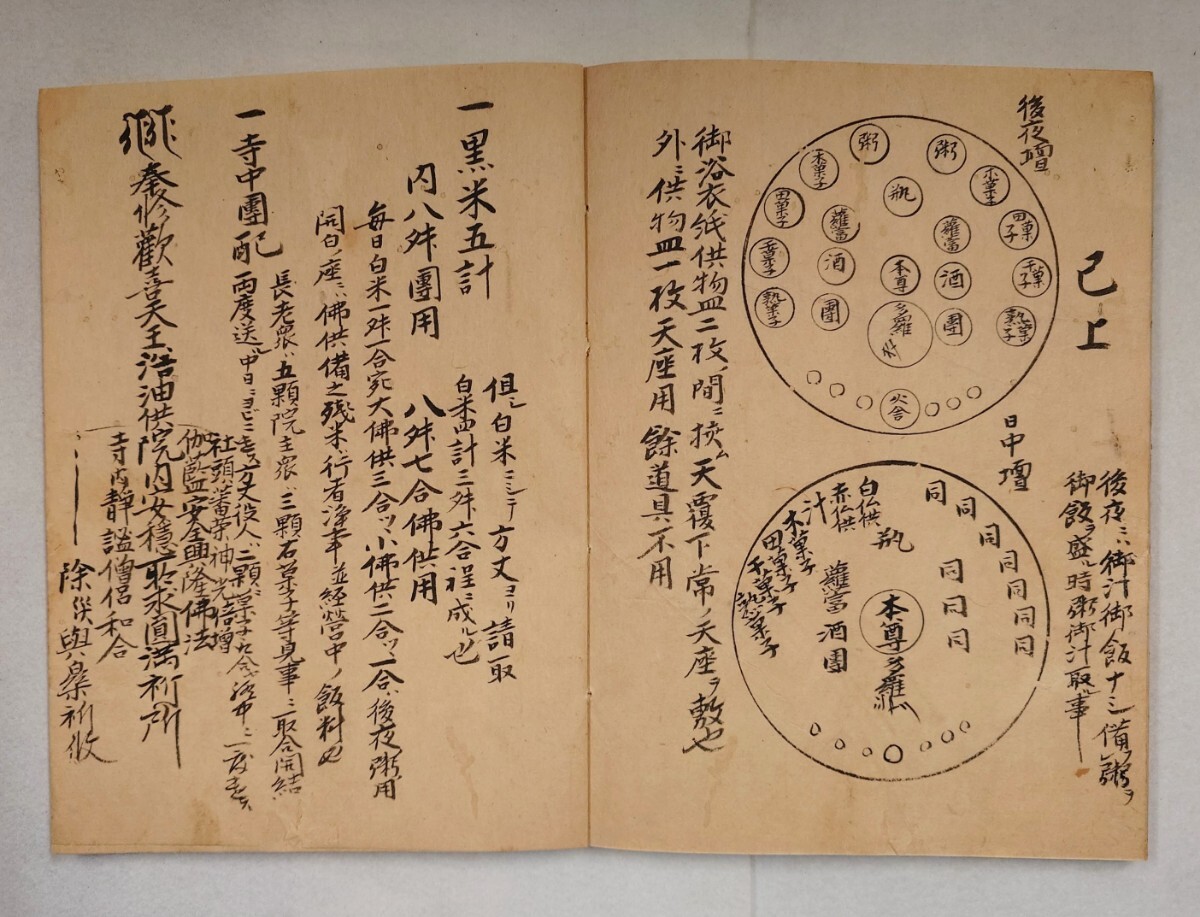 後夜壇
粥
粥
木菓子
木菓子
瓶
田菓子
田菓子
蘿蔔
蘿蔔
干菓子
干菓子
酒
本尊
酒
熟菓子
熟菓子
團
多羅
團
火舎
已上
後夜ニハ御汁御飯十ニ備ヘ粥ヲ
御飯ヲ盛ル時粥御汁取ル事
日中壇
白仏供
赤仏供
汁
木菓子
田菓子
干菓子
熟菓子
瓶
蘿蔔
酒
團
本尊
多羅
同
同
同
同
同
同
同
同
同
同
御浴衣絹供物皿二枚ノ間ニ挾ム天覆下常ノ天座ヲ敷也
外ニ供物皿一枚天座用 餘道具不用
一黒米五計
但シ白米ニシテ方丈ヨリ請取
白米四計三舛六合程ニ成ル也
内八舛團用 八舛七合佛供用
毎日白米一舛一合宛大佛供三合ツヽ小佛供二合ツヽ一合ハ後夜粥用
開白座ニハ佛供備之残米ハ行者浄人並経營中ノ飯料也
一寺中團配
長老衆ハ五顆院主衆ハ三顆石菓子等見事ニ取合開結
兩度送ル中日ニ方丈役人ハ二顆
奉修歡喜天王浴油供院内安穏取求圓滿祈所
社頭蕃栄神光倍増
伽藍安全興隆佛法
寺内静謐僧侶和合
除災與樂祈攸